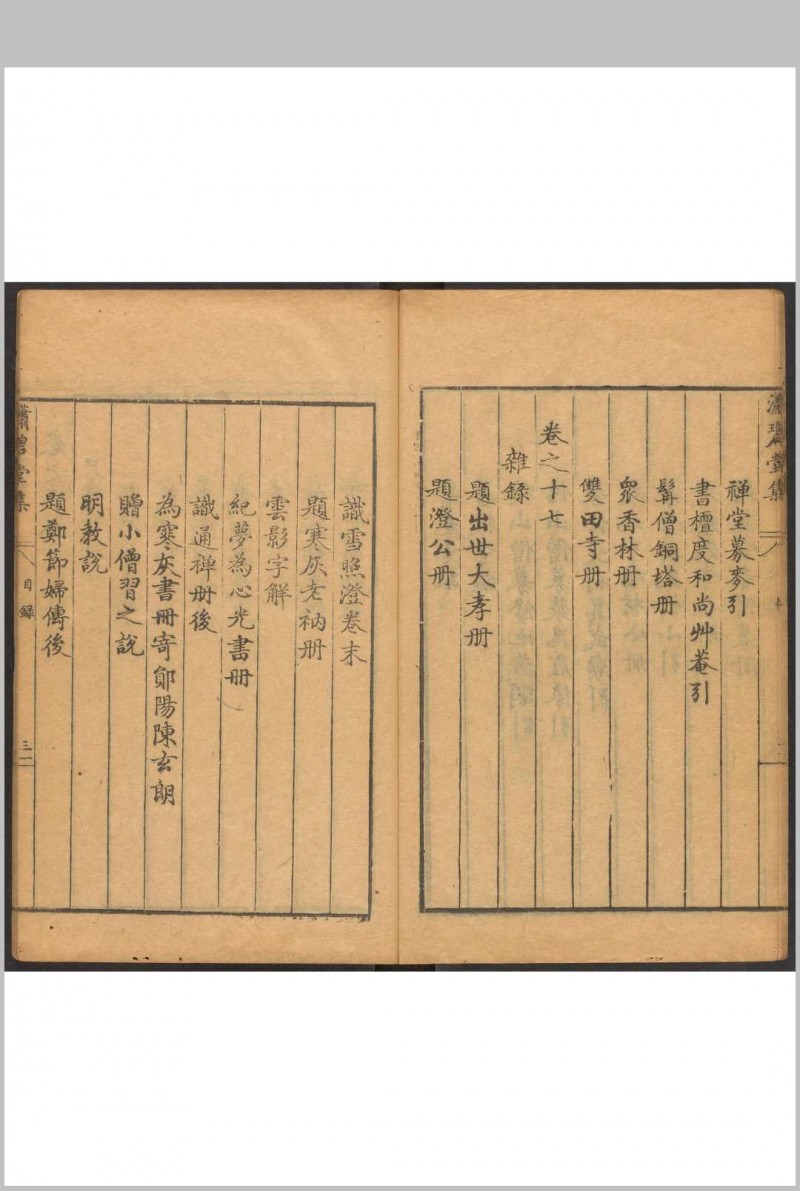 禅堂募麥引
書檀度和尚艸菴引
髯僧銅塔册
衆香林册
雙田寺册
卷之十七
雜録
題出世大孝册
題澄公册
識雪照澄卷末
題寒灰老衲册
雲影字解
紀夢為心光書册
識通禅册後
為寒灰書冊寄鄖陽陳玄朗
贈小僧習之說
明教說
題鄭節婦傳後
瀟碧堂集
目録